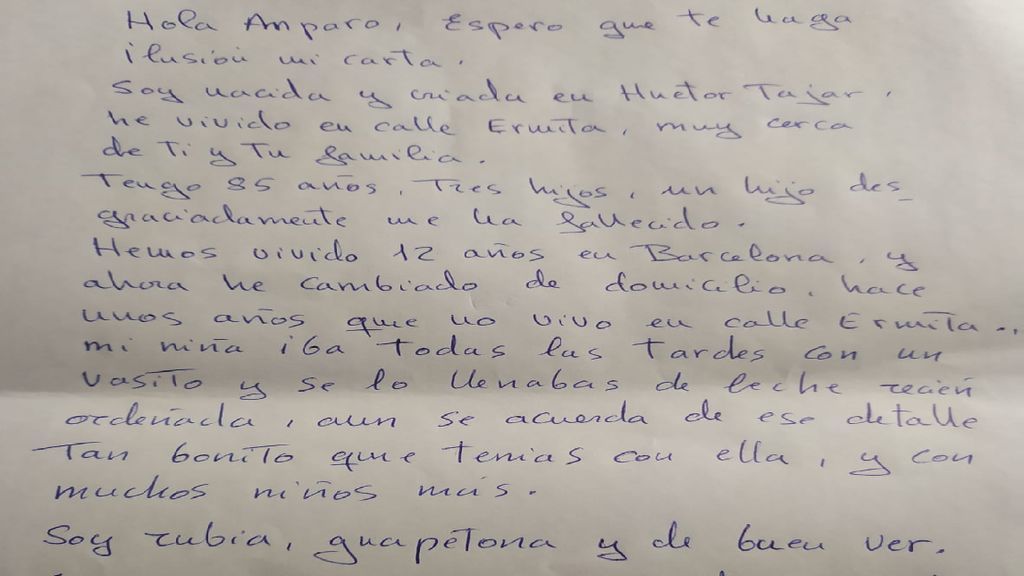 Hola Amparo, Espero que te haga
ilusión mi carta.
Soy nacida y criada en Huetor Tajar,
he vivido en calle Ermita, muy cerca
de Ti y Tu familia.
Tengo 85 años, Tres hijos, un hijo des_
graciadamente me ha fallecido.
Hemos vivido 12 años en Barcelona, y
ahora he cambiado de domicilio, hace
unos años que no vivo en calle Ermita.,
mi niña iba Todas las Tardes con un
vasito y se lo llenabas de leche recien
ordeñada, aun se acuerda de ese detalle
Tan bonito que tenias con ella, y con
muchos niños más.
Soy rubia, guapetona y de buen ver.